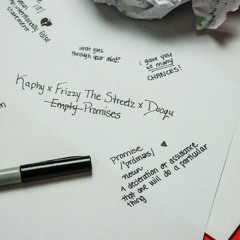 an intentionally false
statement
what goes
through your mind?
i gave you
so many
CHANCES!
Kaphy x Frizzy The Streetz x Dooqu
Empty Promises
promise
/ˈpräməs/
noun
A decleration or assurance
that one will do a particular
thing